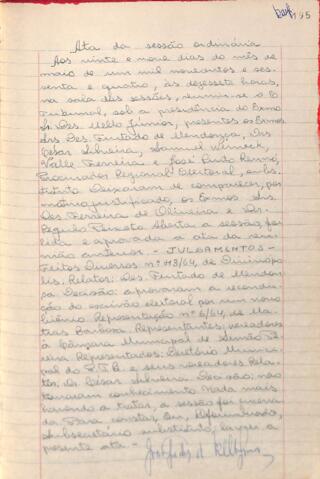 195
Ata da sessão ordinária
Aos vinte e nove dias do mês de
maio de um mil novecentos e ses-
senta e quatro, às dezessete horas,
na sala das sessões, reuniu-se o E.
Tribunal, sob a presidência do Exmo.
Sr. Des. Mello Júnior, presentes os Exmos.
Srs. Des. Furtado de Mendonça, Drs.
César Silveira, Samuel Werneck,
Valle Ferreira e José Paulo
Procurador Regional Eleitoral, subs-
tituto. Deixaram de comparecer, por
motivo justificado, os Exmos. Srs.
Des. Ferreira de Oliveira e Dr.
Péricles Peixoto. Aberta a sessão, foi
lida e aprovada a ata da reu-
nião anterior. - JULGAMENTOS -
Feitos Diversos nº 113/64, de Divinópo-
lis. Relator: Des. Furtado de Mendon-
ça. Decisão: aprovaram a recondu-
ção do escrivão eleitoral por um novo
biênio. Representação nº 6/64, de Ma-
tias Barbosa. Representantes: vereadores
à Câmara Municipal de Simão Pe-
reira. Representados: Diretório Munici-
pal do P.T.B. e seus vereadores. Rela-
tor: Dr. César Silveira. Decisão: não
tomaram conhecimento. Nada mais
havendo a tratar, a sessão foi encerra-
da. Para constar, eu,
subsecretário substituto, lavrei a
presente ata. -